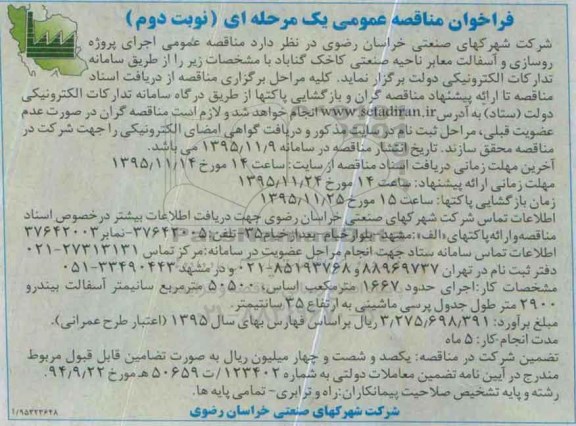 فراخوان مناقصه عمومی یک مرحله ای (نوبت دوم)
شرکت شهرکهای صنعتی خراسان رضوی در نظر دارد مناقصه عمومی اجرای پروژه
روسازی و آسفالت معابر ناحیه صنعتی کاخک گناباد با مشخصات زیر را از طریق سامانه
تدارکات الکترونیکی دولت برگزار نماید. کلیه مراحل برگزاری مناقصه از دریافت اسناد
مناقصه تا ارائه پیشنهاد مناقصه گران و بازگشایی پاکتها از طریق درگاه سامانه تدارکات الکترونیکی
دولت (ستاد) به آدرس www.setadiran.ir انجام خواهد شد و لازم است مناقصه گران در صورت عدم
عضویت قبلی، مراحل ثبت نام در سایت مذکور و دریافت گواهی امضای الکترونیکی را جهت شرکت در
مناقصه محقق سازند. تاریخ انتشار مناقصه در سامانه ۱۳۹۵/۱۱/۹ می باشد.
آخرین مهلت زمانی دریافت اسناد مناقصه از سایت: ساعت ۱۴ مورخ ۱۳۹۵/۱۱/۱۴
مهلت زمانی ارائه پیشنهاد: ساعت ۱۴ مورخ ۱۳۹۵/۱۱/۲۴
زمان بازگشایی پاکتها: ساعت ۱۵ مورخ ۱۳۹۵/۱۱/۲۵
اطلاعات تماس شرکت شهرکهای صنعتی خراسان رضوی جهت دریافت اطلاعات بیشتر درخصوص اسناد
مناقصه و ارائه پاکتهای «الف»: مشهد- بلوار خیام- بعد از خیام ۳۵- تلفن: ۵-۳۷۶۴۲۰۰۰ نمابر ۳۷۶۴۲۰۰۳
اطلاعات تماس سامانه ستاد جهت انجام مراحل عضویت در سامانه: مرکز تماس ۲۷۳۱۳۱۳۱-۰۲۱
دفتر ثبت نام در تهران ۸۸۹۶۹۷۳۷ و ۸۵۱۹۳۷۶۸-۰۲۱ و در مشهد ۳۳۴۹۰۴۴۳-۰۵۱
مشخصات کار: اجرای حدود ۱۶۶۷ مترمکعب اساس، ۵۰۵۰۰ مترمربع سانیمتر آسفالت بیندر و
۲۹۰۰ متر طول جدول پرسی ماشینی به ارتفاع ۳۵ سانتیمتر
مبلغ برآورد: ۳/۲۷۵/۶۹۸/۳۹۱ ریال براساس فهارس بهای سال ۱۳۹۵ (اعتبار طرح عمرانی).
مدت انجام کار: ۵ ماه
تضمین شرکت در مناقصه: یکصد و شصت و چهار میلیون ریال به صورت تضامین قابل قبول مربوط
مندرج در آیین نامه تضمین معاملات دولتی به شماره ۱۲۳۴۰۲/ت ۵۰۶۵۹ هـ مورخ ۹۴/۹/۲۲.
رشته و پایه تشخیص صلاحیت پیمانکاران: راه و ترابری- تمامی پایه ها.
شرکت شهرکهای صنعتی خراسان رضوی
۱/۹۵۲۲۳۶۲۸